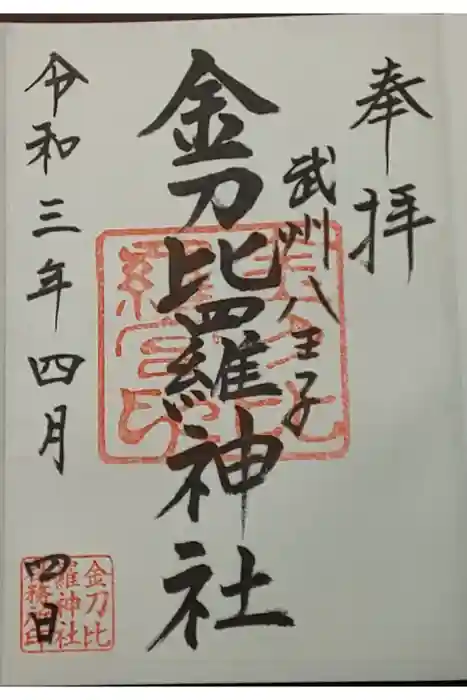 奉拝
武州八王子
金刀比羅神社
令和三年四月
四日
金刀比
羅神社